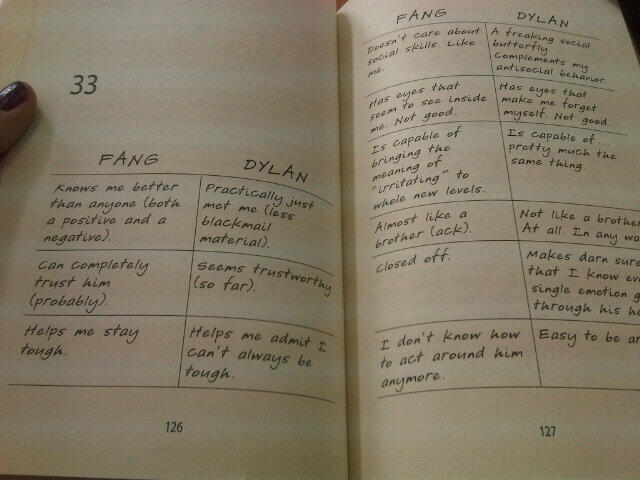 33
FANG DYLAN
Knows me better
than anyone (both
a positive and a
negative).
Practically just
met me (less
blackmail
material).
Can completely
trust him
(probably).
Seems trustworthy
(so far).
Helps me stay
tough.
Helps me admit I
can't always be
tough.
126
FANG DYLAN
Doesn't care about
social skills. Like
me.
A freaking social
butterfly.
Complements my
antisocial behavior.
Has eyes that
seem to see inside
me. Not good.
Has eyes that
make me forget
myself. Not good.
Is capable of
bringing the
meaning of
"irritating" to
whole new levels.
Is capable of...
pretty much the
same thing.
Almost like a
brother (ack).
Not like a brother
At all. In any
Closed off.
Makes darn sure
that I know
single emotion
through his
I don't know how
to act around him
anymore.
Easy to be
127